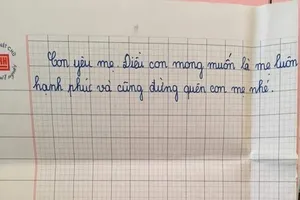 Con yêu mẹ. Điều con mong muốn là mẹ luôn
hạnh phúc và cũng đừng quên con mẹ nhé.